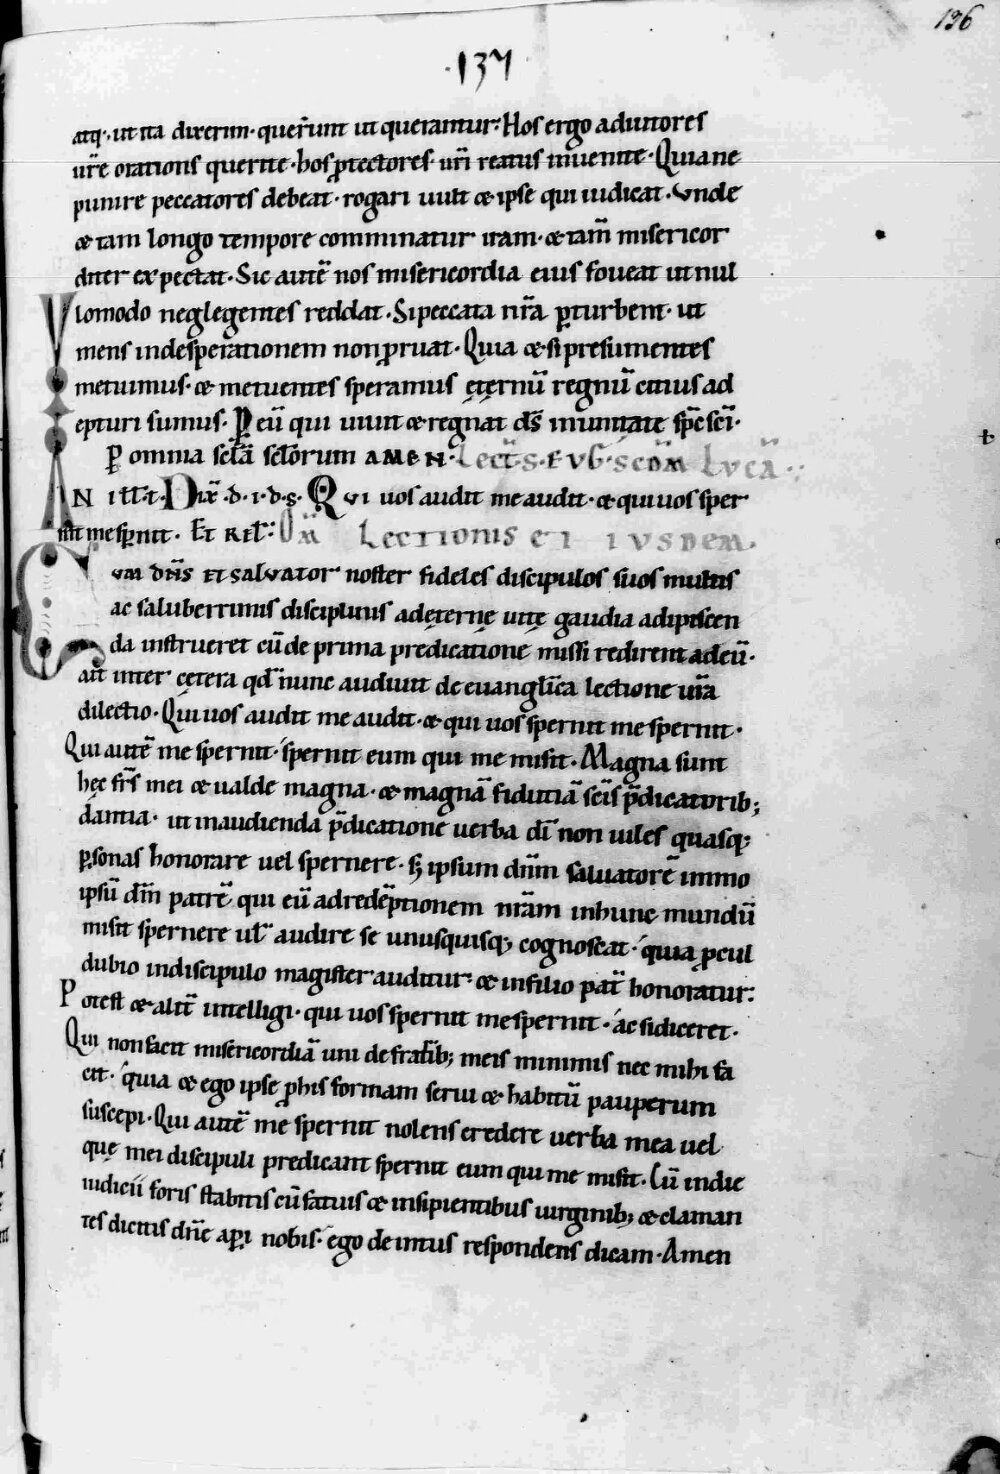 136
·137
atq;· ut ita dixerim· querunt ut querantur: Hos ergo adiutores
ur̄e orationis querite· hos ꝓtectores· ur̄i reatus inuenite· Quia ne
punire peccatores debeat· rogari uult & ipse qui iudicat· vnde
& tam longo tempore comminatur iram· & tam̄ misericor
diter expectat· Sic autē nos misericordia eius foueat ut nul
lomodo neglegentes reddat· Si peccata nr̄a ꝑturbent· ut
mens in desperationem non ꝓruat· Quia & si presumentes
metuimus· & metuentes speramus ęternū regnū eti&us ad
epturi sumus· P eū qui uiuit & regnat ds̄ in unitate sp̄c sc̄i·
ꝑ omnia sc̄ła scłorum AMEN· Lect̄· S· EVG· SCDM LVCA··
IN iłł· t· Dix̄· d· i· d· s· Qui uos audit me audit· & qui uos sper
nit me sꝑnit· Et reł: Om̄ Lectionis ei iusdem·
Cum dn̄s et salvator noster fideles discipulos suos multis
ac saluberrimis disciplinis ad ęternę uitę gaudia adipiscen
da instrueret cū de prima predicatione missi redirent ad eū·
ait inter cętera qd̄ nunc audiuit de euangłica lectione ur̄a
dilectio· Qui uos audit me audit· & qui uos spernit me spernit·
Qui autē me spernit· spernit eum qui me misit· Magna sunt
hęc fr̄s mei & ualde magna· & magnā fidutiā sc̄is p̄dicatorib;
dantia· ut in audienda p̄dicatione uerba dī non uiles quasq;
ꝑsonas honorare uel spernere· sꝫ ipsum dn̄m saluatorē immo
ipsū dm̄ patrē qui eū ad redēptionem nr̄am in hunc mundū
misit spernere uł audire se unusquisq; cognoscat· quia ꝓcul
dubio in discipulo magister auditur: & in filio pat̄ honoratur:
Potest & alit̄ intelligi· qui uos spernit me spernit· ac si diceret·
Qui non facit misericordiā uni de fratrib; meis minimis nec mihi fa
cit· quia & ego ipse ꝓ his formam serui & habitū pauperum
suscepi· Qui autē me spernit nolens credere uerba mea uel
quę mei discipuli predicant spernit eum qui me misit· Cū in die
iudicii foris stabitis cū fatuis & insipientibus uirginib; & claman
tes dicitis dn̄e aꝑi nobis· ego de intus respondens dicam· Amen